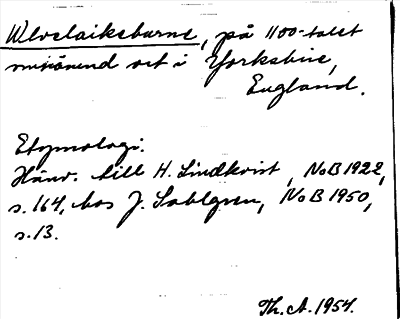 Ulveslaiksburne, på 1100-talet
omnämnd ort i Yorkshire,
England.
Etymologi.
Hänv. till H. Lindkvist, NoB 1922,
s. 164, hos J. Sahlgren, NoB 1950,
s. 13.
Th. A. 1954.